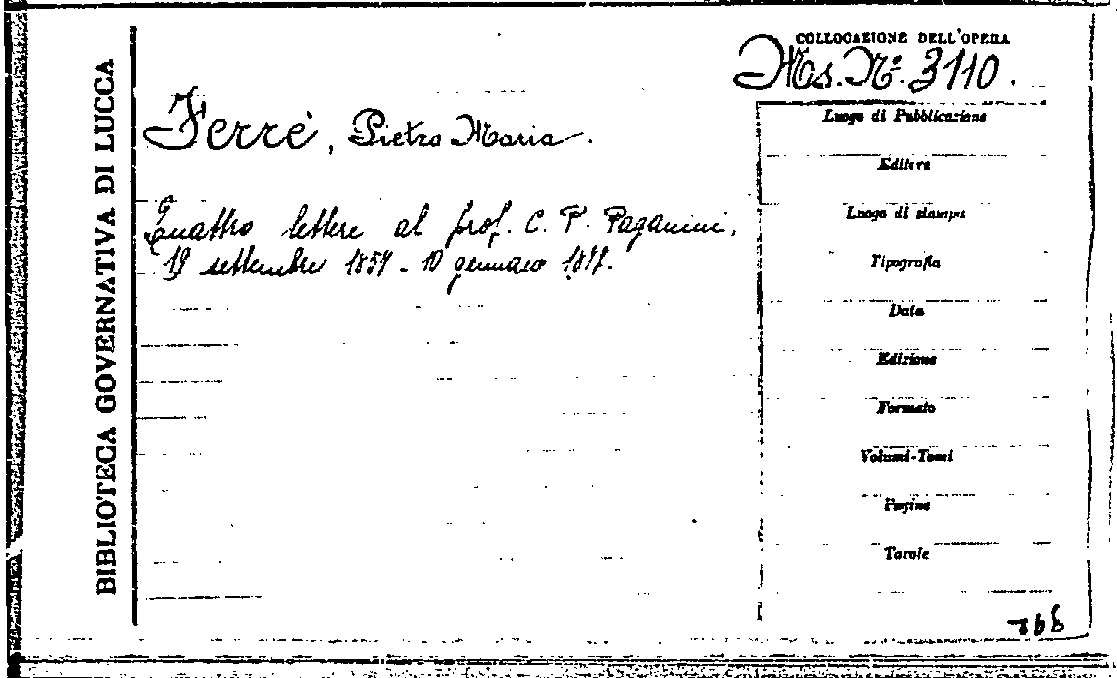 BIBLIOTECA GOVERNATIVA DI LUCCA
COLLOCAZIONE DELL'OPERA
Ms. Nº. 3110.
Ferrè, Pietro Maria.
Quattro lettere al prof. C. P. Paganini,
settembre - 10 gennaio
Luogo di Pubblicazione
Editore
Luogo di stampa
Tipografia
Data
Edizione
Formato
Volumi-Tomi
Pagine
Tavole